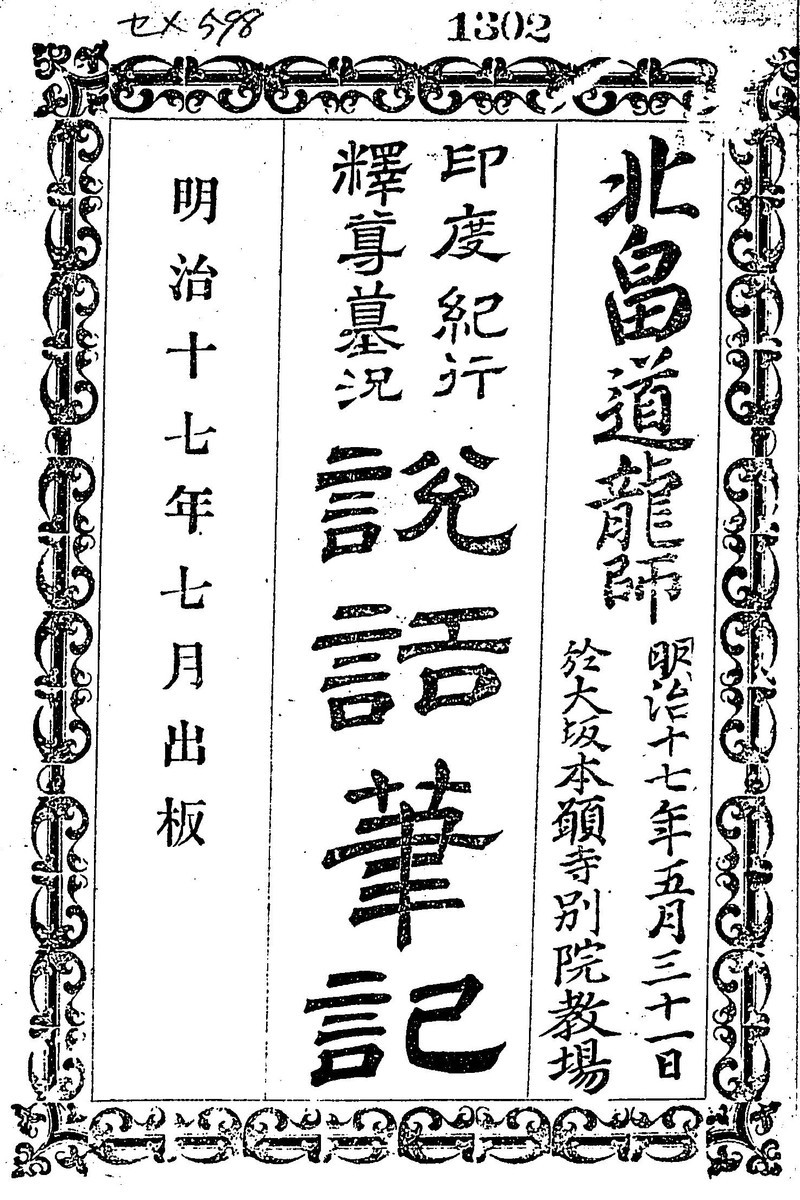 セメ598
1302
北畠道龍師
明治十七年五月三十一日
於大坂本願寺別院教場
印度紀行
釋尊墓況
說話筆記
明治十七年七月出板